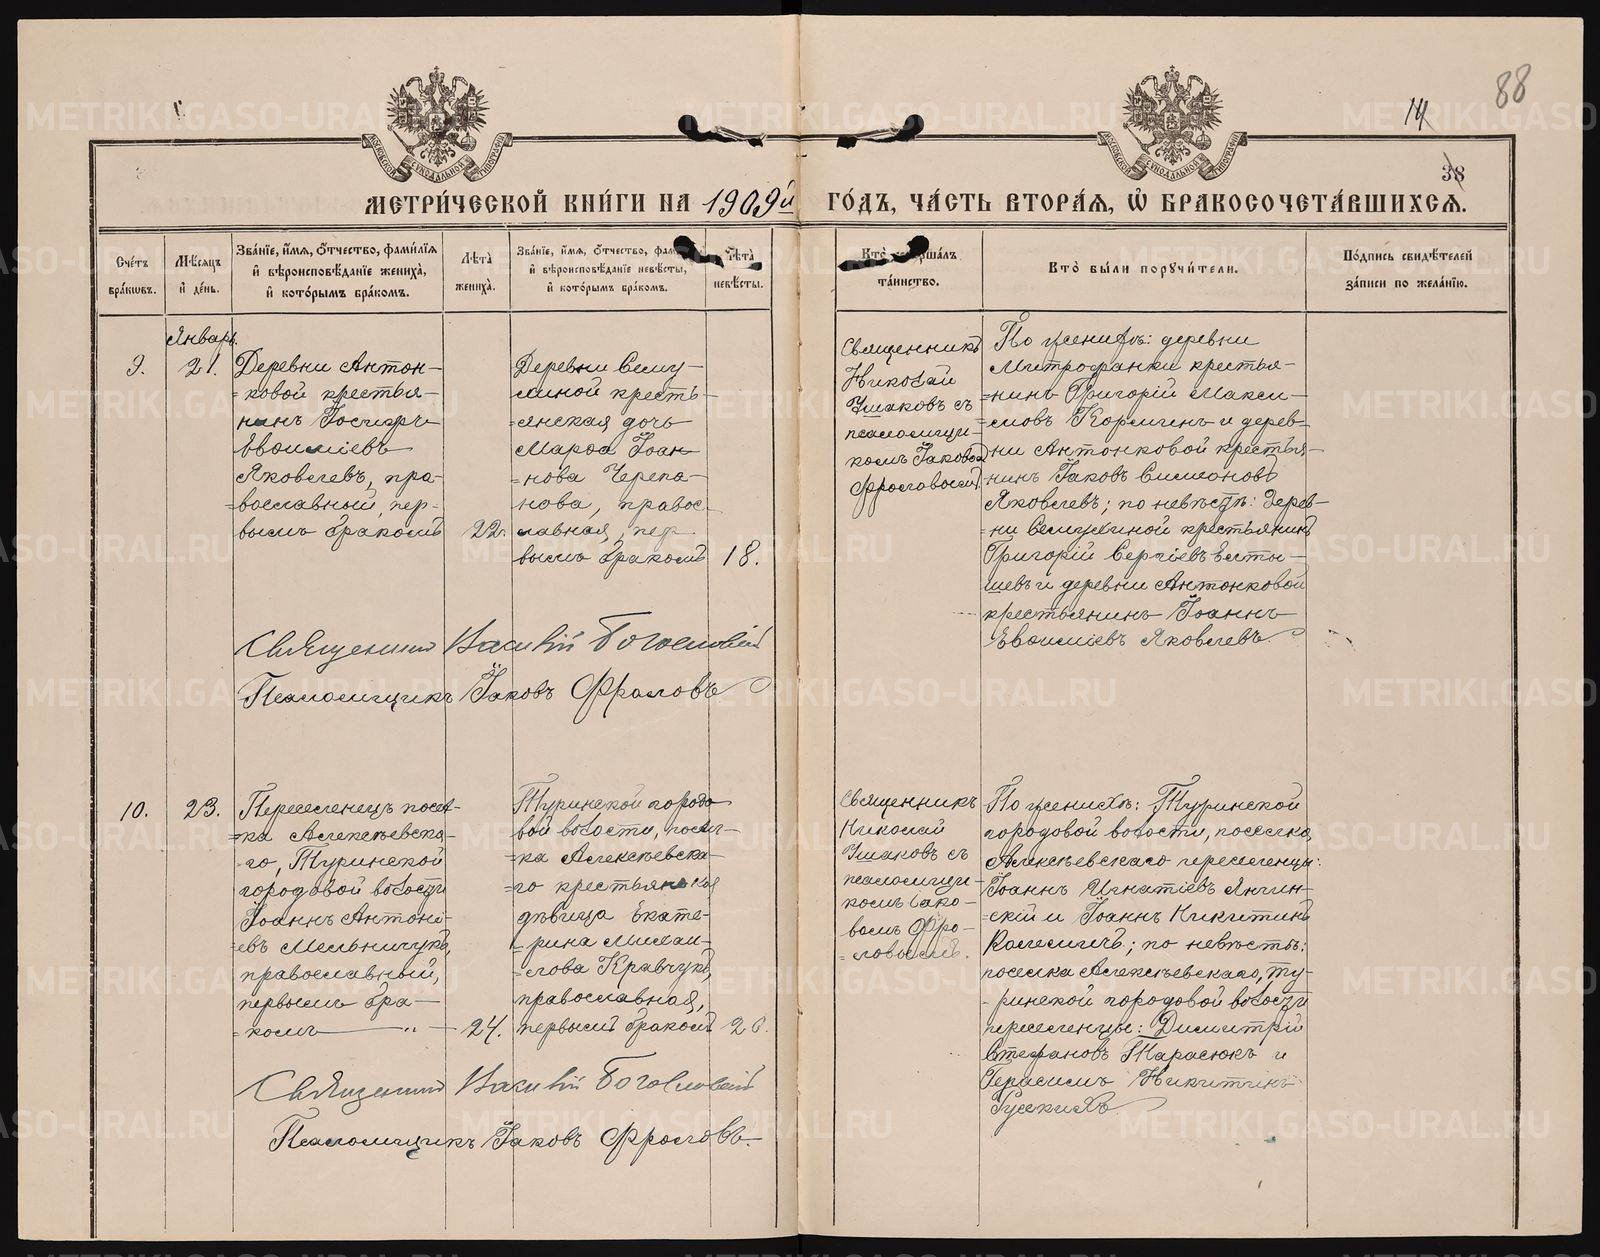 14
88
38
МЕТРИ́ЧЕСКОЙ КНИ́ГИ НА 1909й ГО́ДЪ, ЧА́СТЬ ВТОРА́Я, Ѽ БРАКОСОЧЕТА́ВШИХСЯ.
Сче́тъ
бра́ковъ.
Мѣ́сяцъ
и҆ де́нь.
Зва́нїе, и҆́мя, ѻ҆́тчество, фами́лїя
и҆ вѣроисповѣ́данїе жениха̀,
и҆ кото́рымъ бра́комъ.
Лѣта̀
жениха̀.
Зва́нїе, и҆́мя, ѻ҆́тчество, фами́лїя
и҆ вѣроисповѣ́данїе невѣ́сты,
и҆ кото́рымъ бра́комъ.
Лѣта̀
невѣ́сты.
Кто̀ соверша́лъ
та́инство.
Кто̀ бы́ли порꙋчи́тели.
По́дпись свидѣ́телей
за́писи по жела́нїю.
9.
Январь.
21.
Деревни Антон-
ковой крестья-
нинъ
Евѳиміевъ
Яковлевъ, пра-
вославный, пер-
вымъ бракомъ
22.
Деревни
кресть-
янская дочь
Марѳа Іоан-
нова Черепа-
нова, правос-
лавная, пер-
вымъ бракомъ
18.
Священникъ
Николай
Ушаковъ съ
псаломщи-
комъ Іаковомъ
Фроловымъ.
По женихѣ: деревни
Митрофанки крестья-
нинъ Григорій Макси-
мовъ Корминъ и дерев-
ни Антонковой крестья-
нинъ Іаковъ Симеоновъ
Яковлевъ; по невѣстѣ: дерев-
ни крестьянинъ
Григорій Сергіевъ Елты-
шевъ и деревни Антонковой
крестьянинъ Іоаннъ
Евѳиміевъ Яковлевъ.
Священникъ Василій Богословскій
Псаломщикъ Іаковъ Фроловъ
10.
23.
Переселенецъ посел-
ка Алексѣевска-
го, Туринской
городовой волости
Іоаннъ Антоні-
евъ Мельничукъ,
православный,
первымъ бра-
комъ
24.
Туринской городо-
вой волости, посел-
ка Алексѣевска-
го крестьянская
дѣвица Екате-
рина Михаи-
лова Кравчукъ,
православная,
первымъ бракомъ
20.
Священникъ
Николай
Ушаковъ съ
псаломщи-
комъ Іако-
вомъ Фро-
ловымъ.
По женихѣ: Туринской
городовой волости, поселка
Алексѣевскаго переселенцы:
Іоаннъ Игнатіевъ Янчин-
скій и Іоаннъ Никитинъ
по невѣстѣ:
поселка Алексѣевскаго, Ту-
ринской городовой волости
переселенцы: Димитрій
Стефановъ Тарасюкъ и
Герасимъ Никитинъ
Священникъ Василій Богословскій
Псаломщикъ Іаковъ Фроловъ.
METRIKI.GASO-URAL.RU